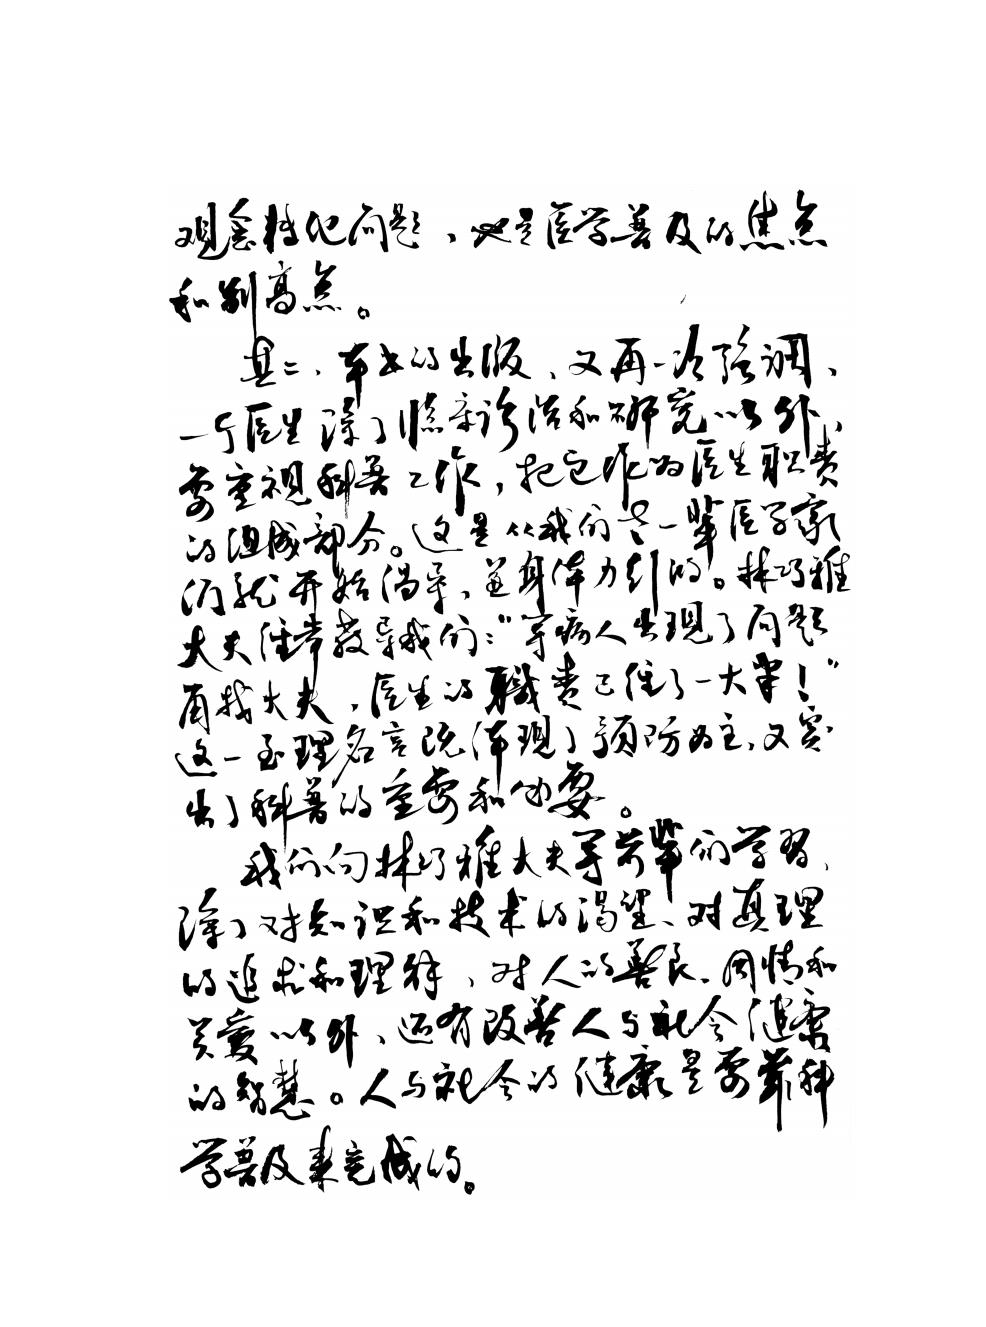 观念转化问题，也是医学普及的焦点
和制高点。
其二、本书的出版、又再一次强调、
一个医生除了临床诊治和研究以外，
要重视科普工作，把它作为医生职责
的组成部分。这是从我们老一辈医学家
们就开始倡导，并身体力行的。林巧稚
大夫经常教导我们：“等病人出现了问题
再找大夫，医生的职责已经丢了一大半！”
这一至理名言既体现了预防为主，又突
出了科普的重要和必要。
我们向林巧稚大夫等前辈们学习、
除了对知识和技术的渴望、对真理
的追求和理解、对人的善良、同情和
关爱以外、还有改善人与社会健康
的智慧。人与社会的健康是要靠科
学普及来完成的。